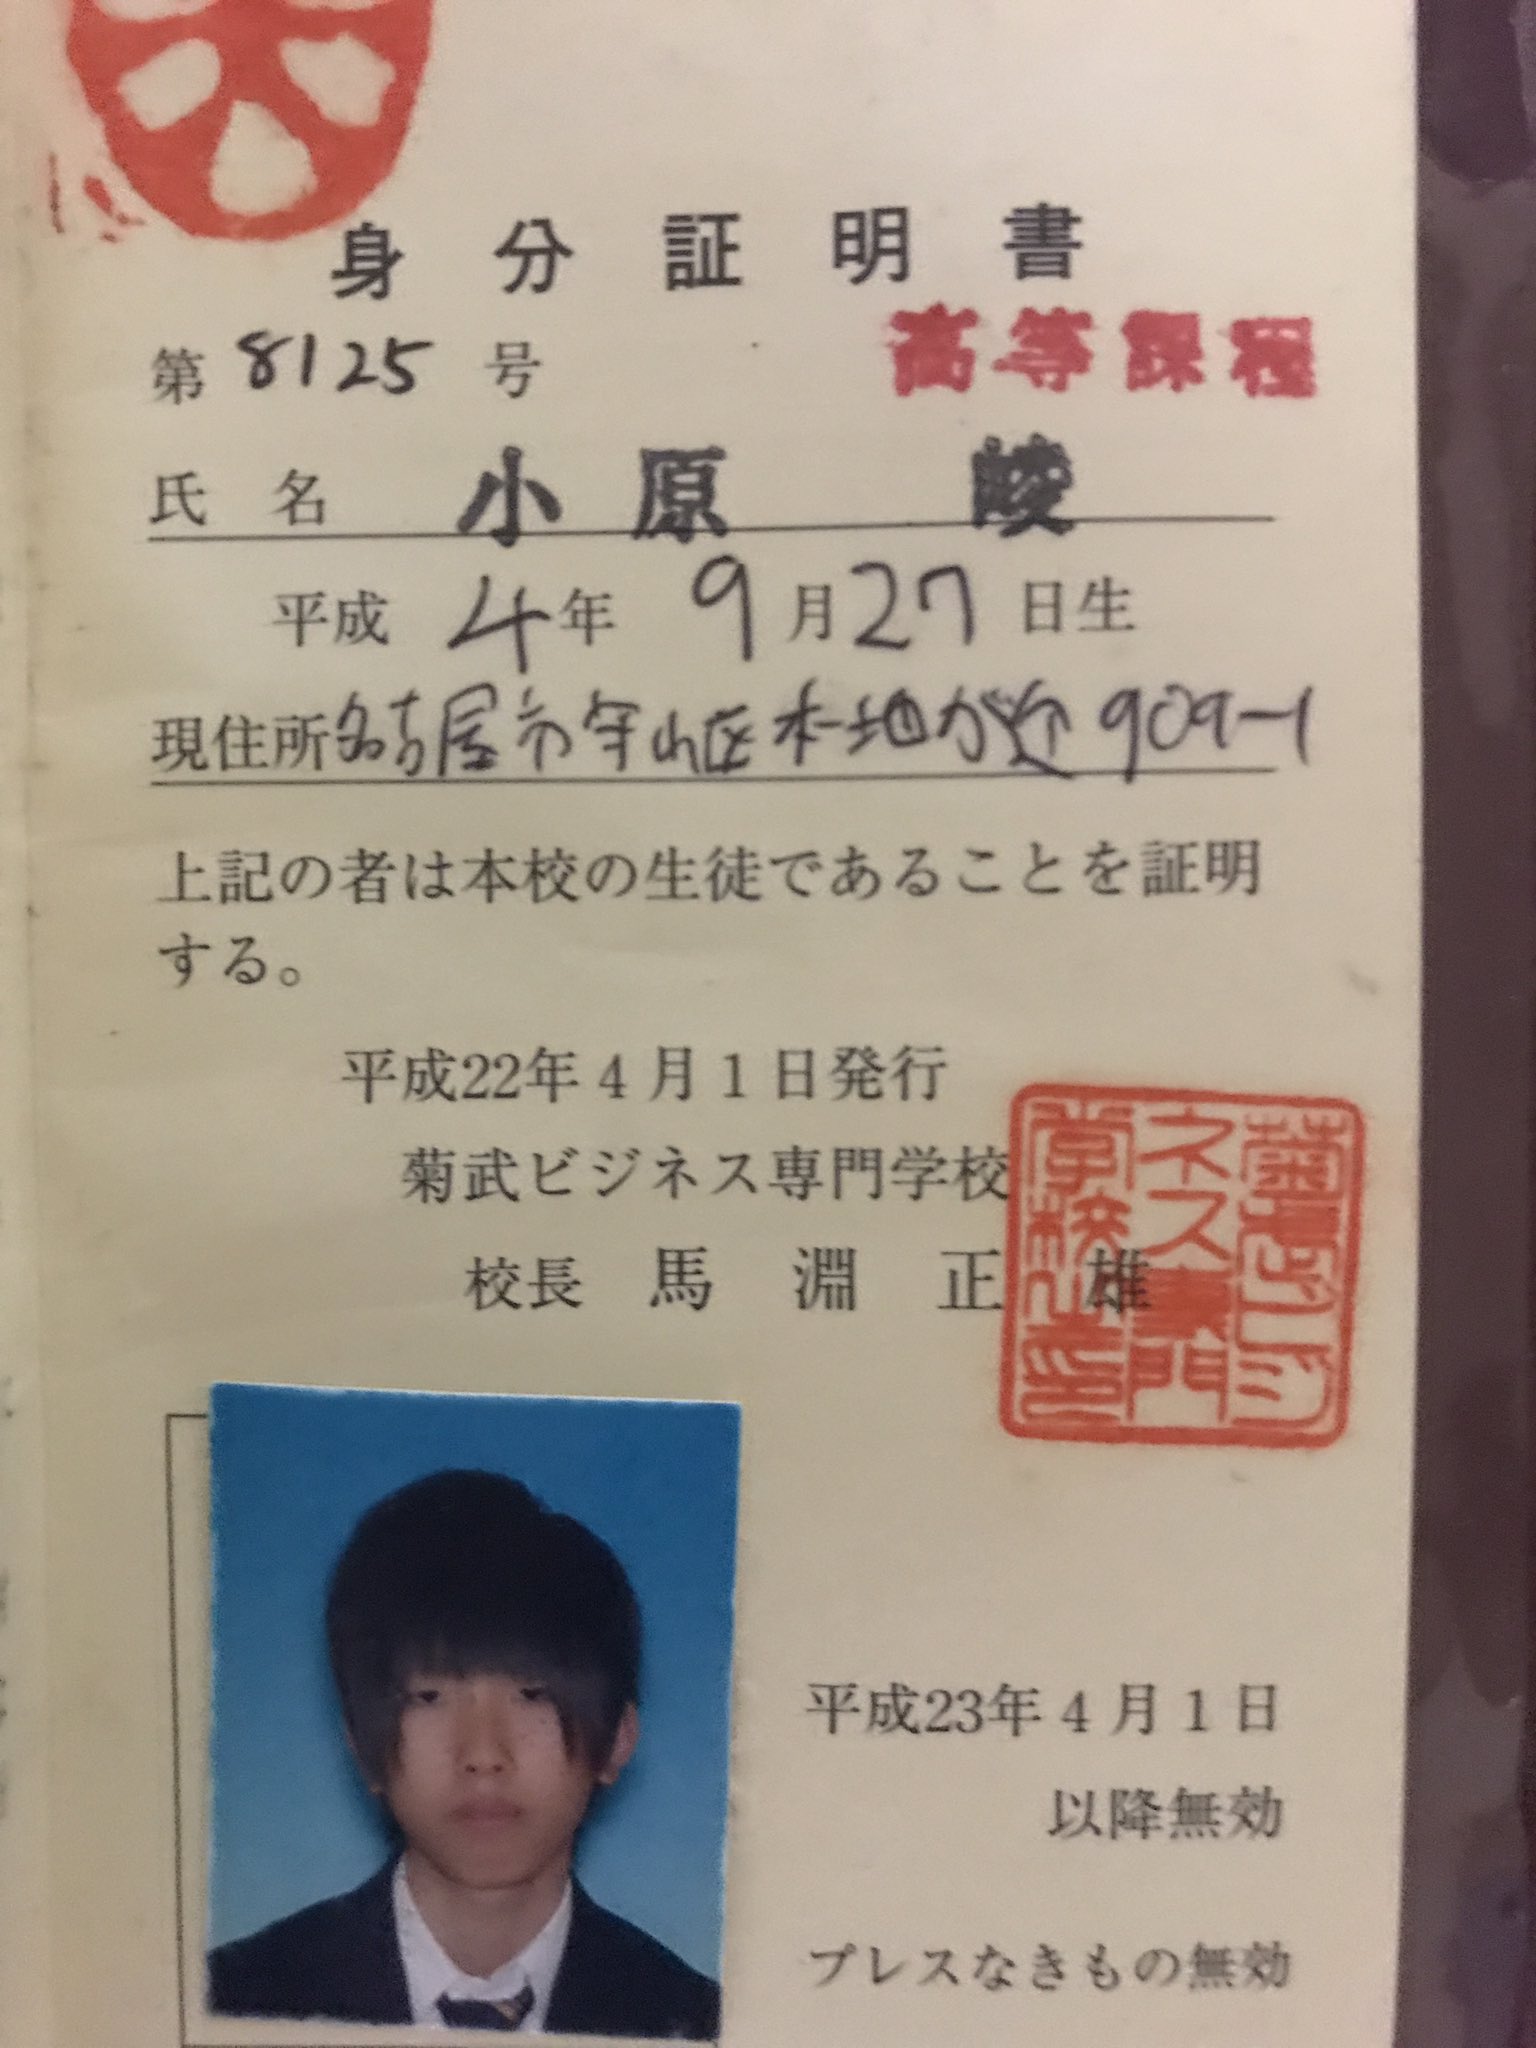 身分証明書
第 8125 号 高等課程
氏名 小原 崚
平成 4年 9月27日生
現住所 名古屋市守山区本地が丘909-1
上記の者は本校の生徒であることを証明
する。
平成22年4月1日発行
菊武ビジネス専門学校
校長 馬淵正雄
菊武ビジ
ネス専門
学校之印
平成23年4月1日
以降無効
プレスなきもの無効